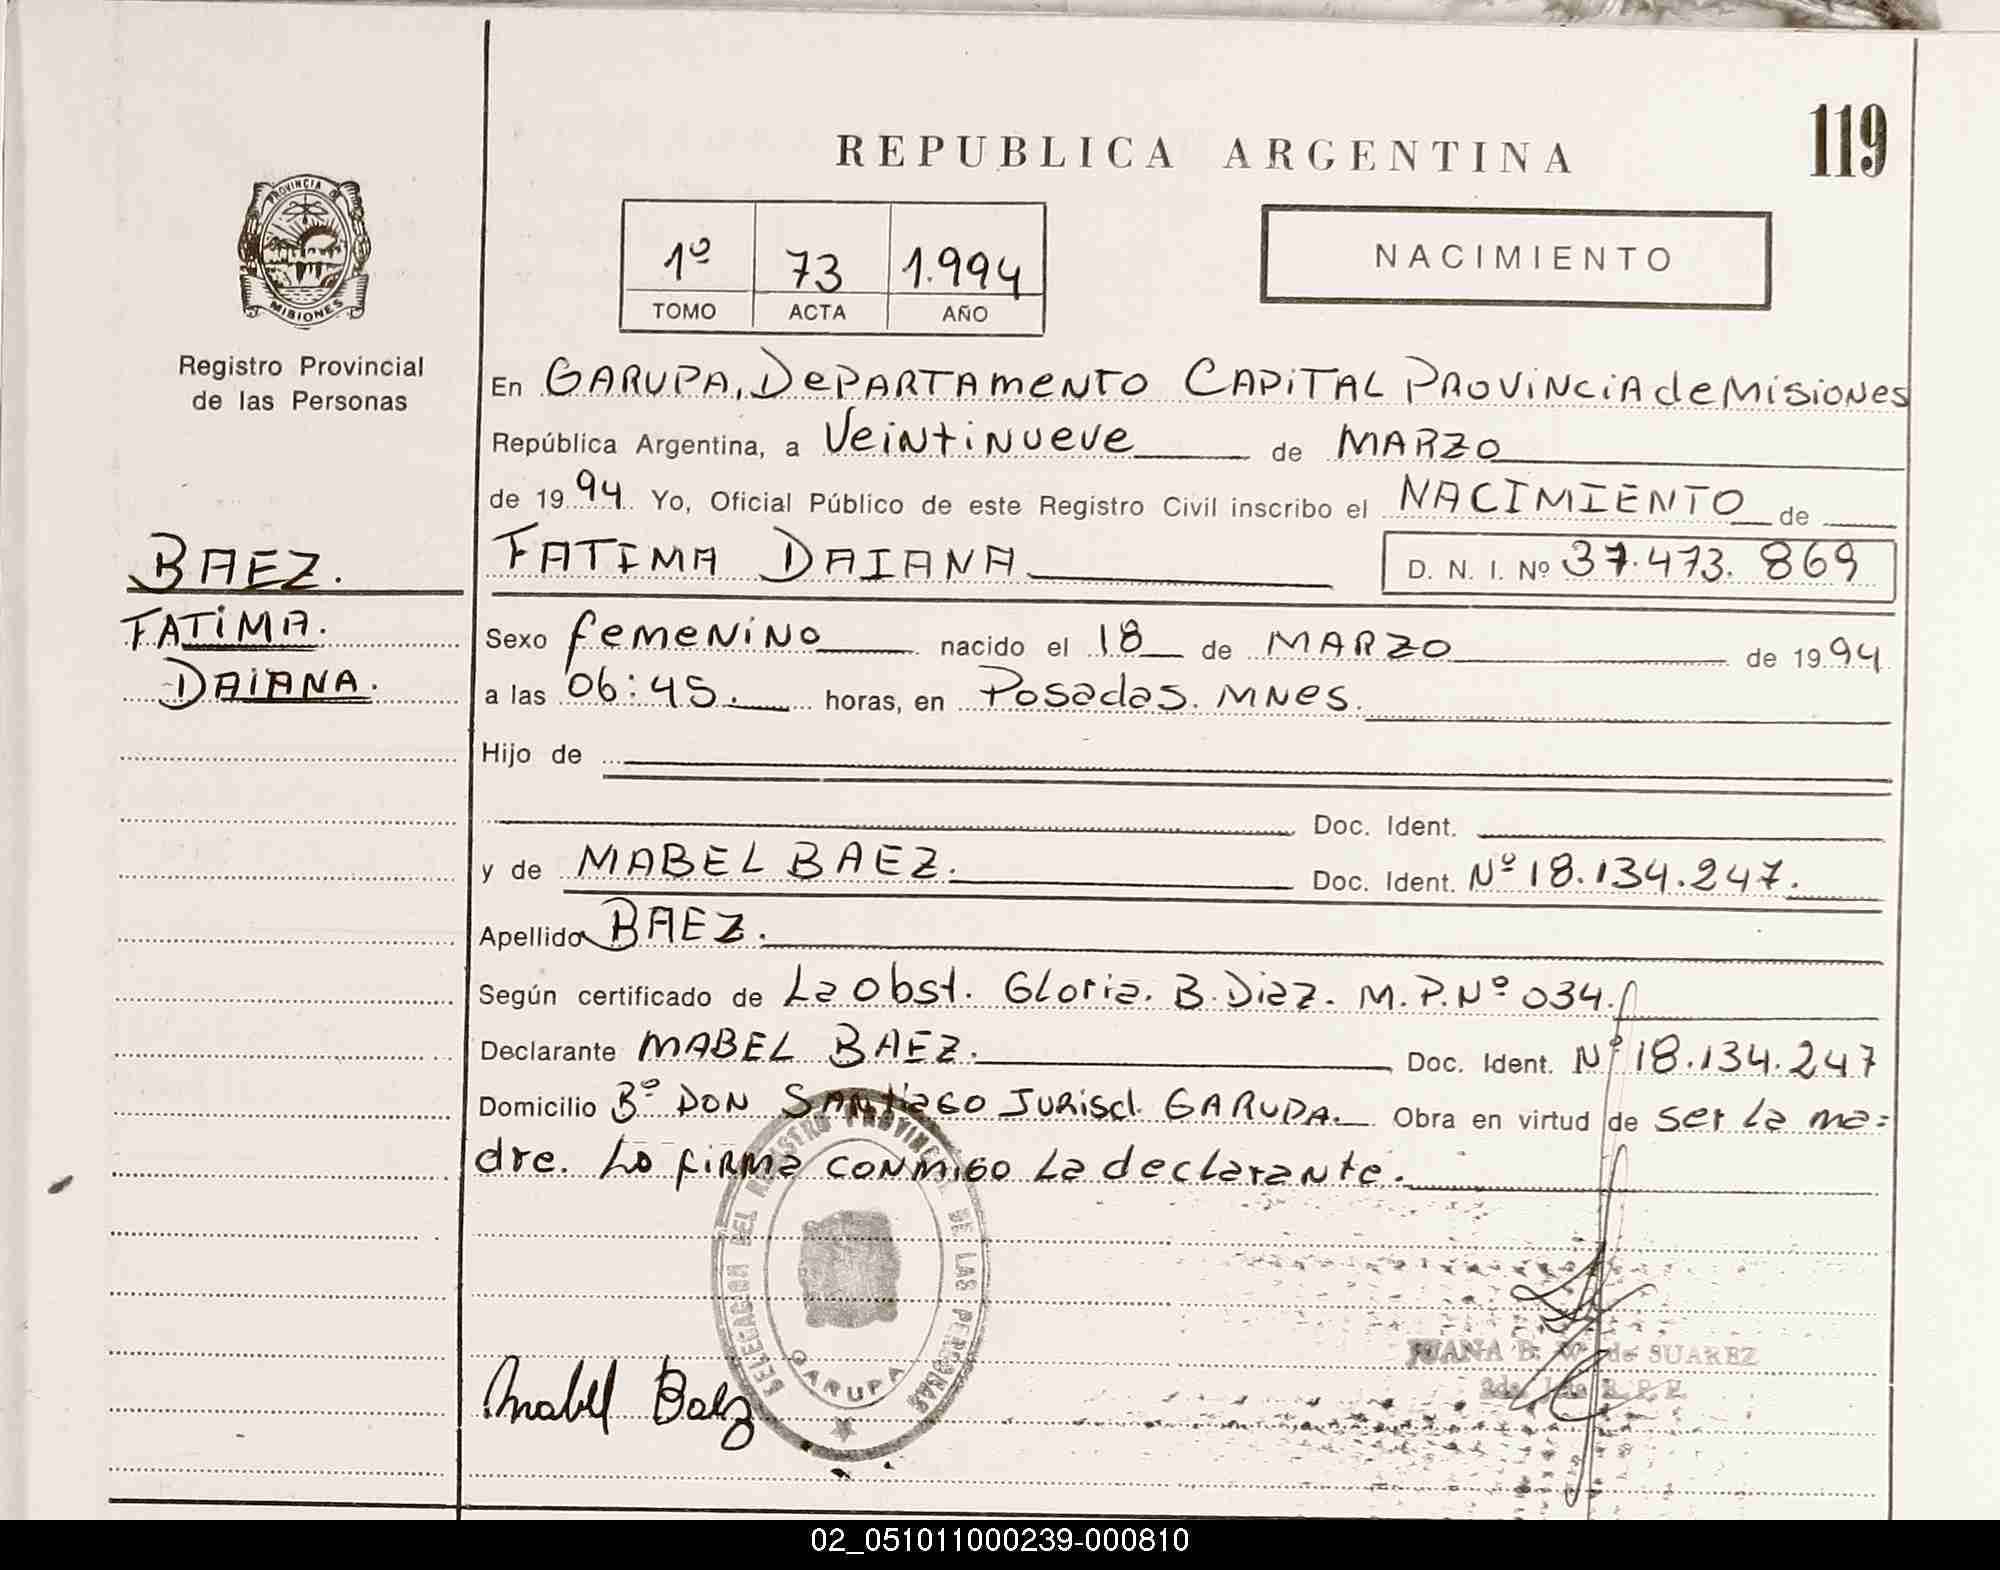 119
REPUBLICA ARGENTINA
PROVINCIA DE
MISIONES
Registro Provincial
de las Personas
1º 73 1.994
TOMO ACTA AÑO
NACIMIENTO
En GARUPA, DEPARTAMENTO CAPITAL PROVINCIA de MISIONES
República Argentina, a Veintinueve de MARZO
de 1994. Yo, Oficial Público de este Registro Civil inscribo el NACIMIENTO de
BAEZ.
FATIMA.
DAIANA.
FATIMA DAIANA D. N. I. Nº 37.473.869
Sexo femenino nacido el 18 de MARZO de 1994
a las 06:45. horas, en Posadas. MNES.
Hijo de
Doc. Ident.
y de MABEL BAEZ. Doc. Ident. Nº 18.134.247.
Apellido BAEZ.
Según certificado de La Obst. Gloria. B. Diaz. M.P.Nº 034.
Declarante MABEL BAEZ. Doc. Ident. Nº 18.134.247
Domicilio Bº DON Santiago Jurisd. GARUPA. Obra en virtud de ser la ma=
dre. Lo firma conmigo la declarante.
DELEGACION DEL REGISTRO PROVINCIAL DE LAS PERSONAS
GARUPA
JUANA B. de SUAREZ
Mabel Baez
02_051011000239-000810